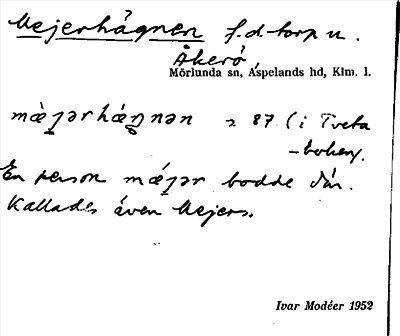 Mejerhägnen f.d. torp u.
Åkerö,
Mörlunda sn, Aspelands hd, Klm. l.
mæ̀jərhæ̀ŋnən s 87 (i Tveta
-boken).
En person mǽjər bodde där.
Kallades även Mejers.
Ivar Modéer 1952